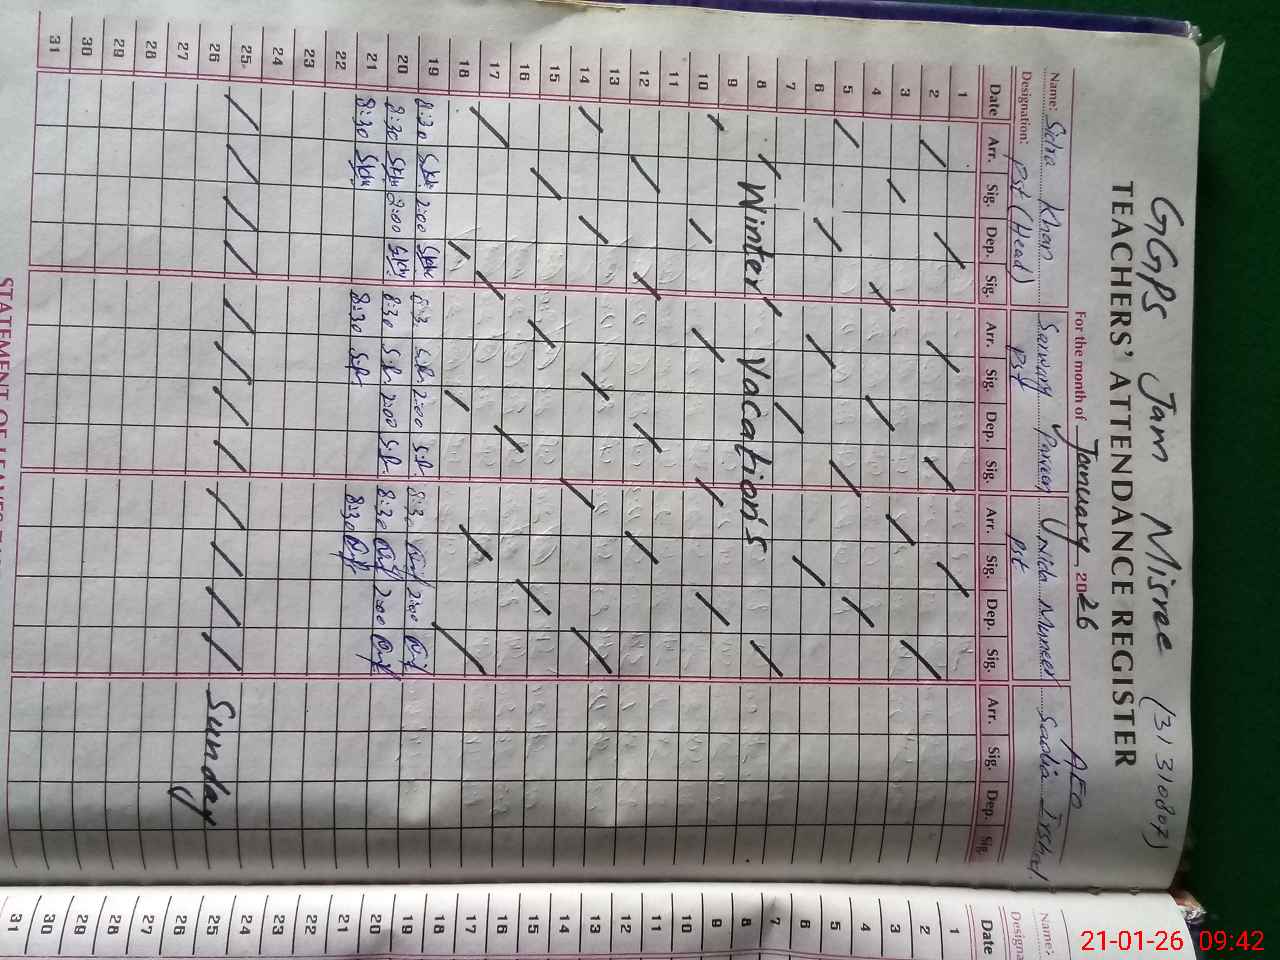 GGPS Jam Misree (31310807)
TEACHERS' ATTENDANCE REGISTER
For the month of January 2026
AEO
Name: Sidra Khan Parveen Unsida Muneer Sadia Irshad
Designation: Pst (Head) Pst Pst
Date Arr. Sig. Dep. Sig. Arr. Sig. Dep. Sig. Arr. Sig. Dep. Sig. Arr. Sig. Dep. Sig.
1
2
3
4
5
6
7
8 Winter Vacation's
9
10
11
12
13
14
15
16
17
18
19 8:30 2:00 2:00 8:30 2:00
20 8:30 2:00 8:30 2:00 8:30 2:00
21 8:30 8:30 8:30
22
23
24
25 Sunday
26
27
28
29
30
31
STATEMENT OF LEAVES
Name:
Designa
Date
1
2
3
4
5
6
7
8
9
10
11
12
13
14
15
16
17
18
19
20
21
22
23
24
25
26
27
28
29
30
31
21-01-26 09:42